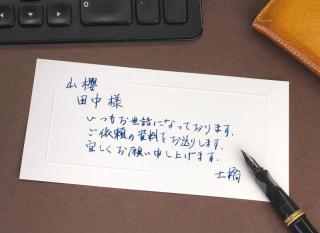 山櫻
田中様
いつもお世話になっております。
ご依頼の資料をお送りします。
宜しくお願い申し上げます。
土橋